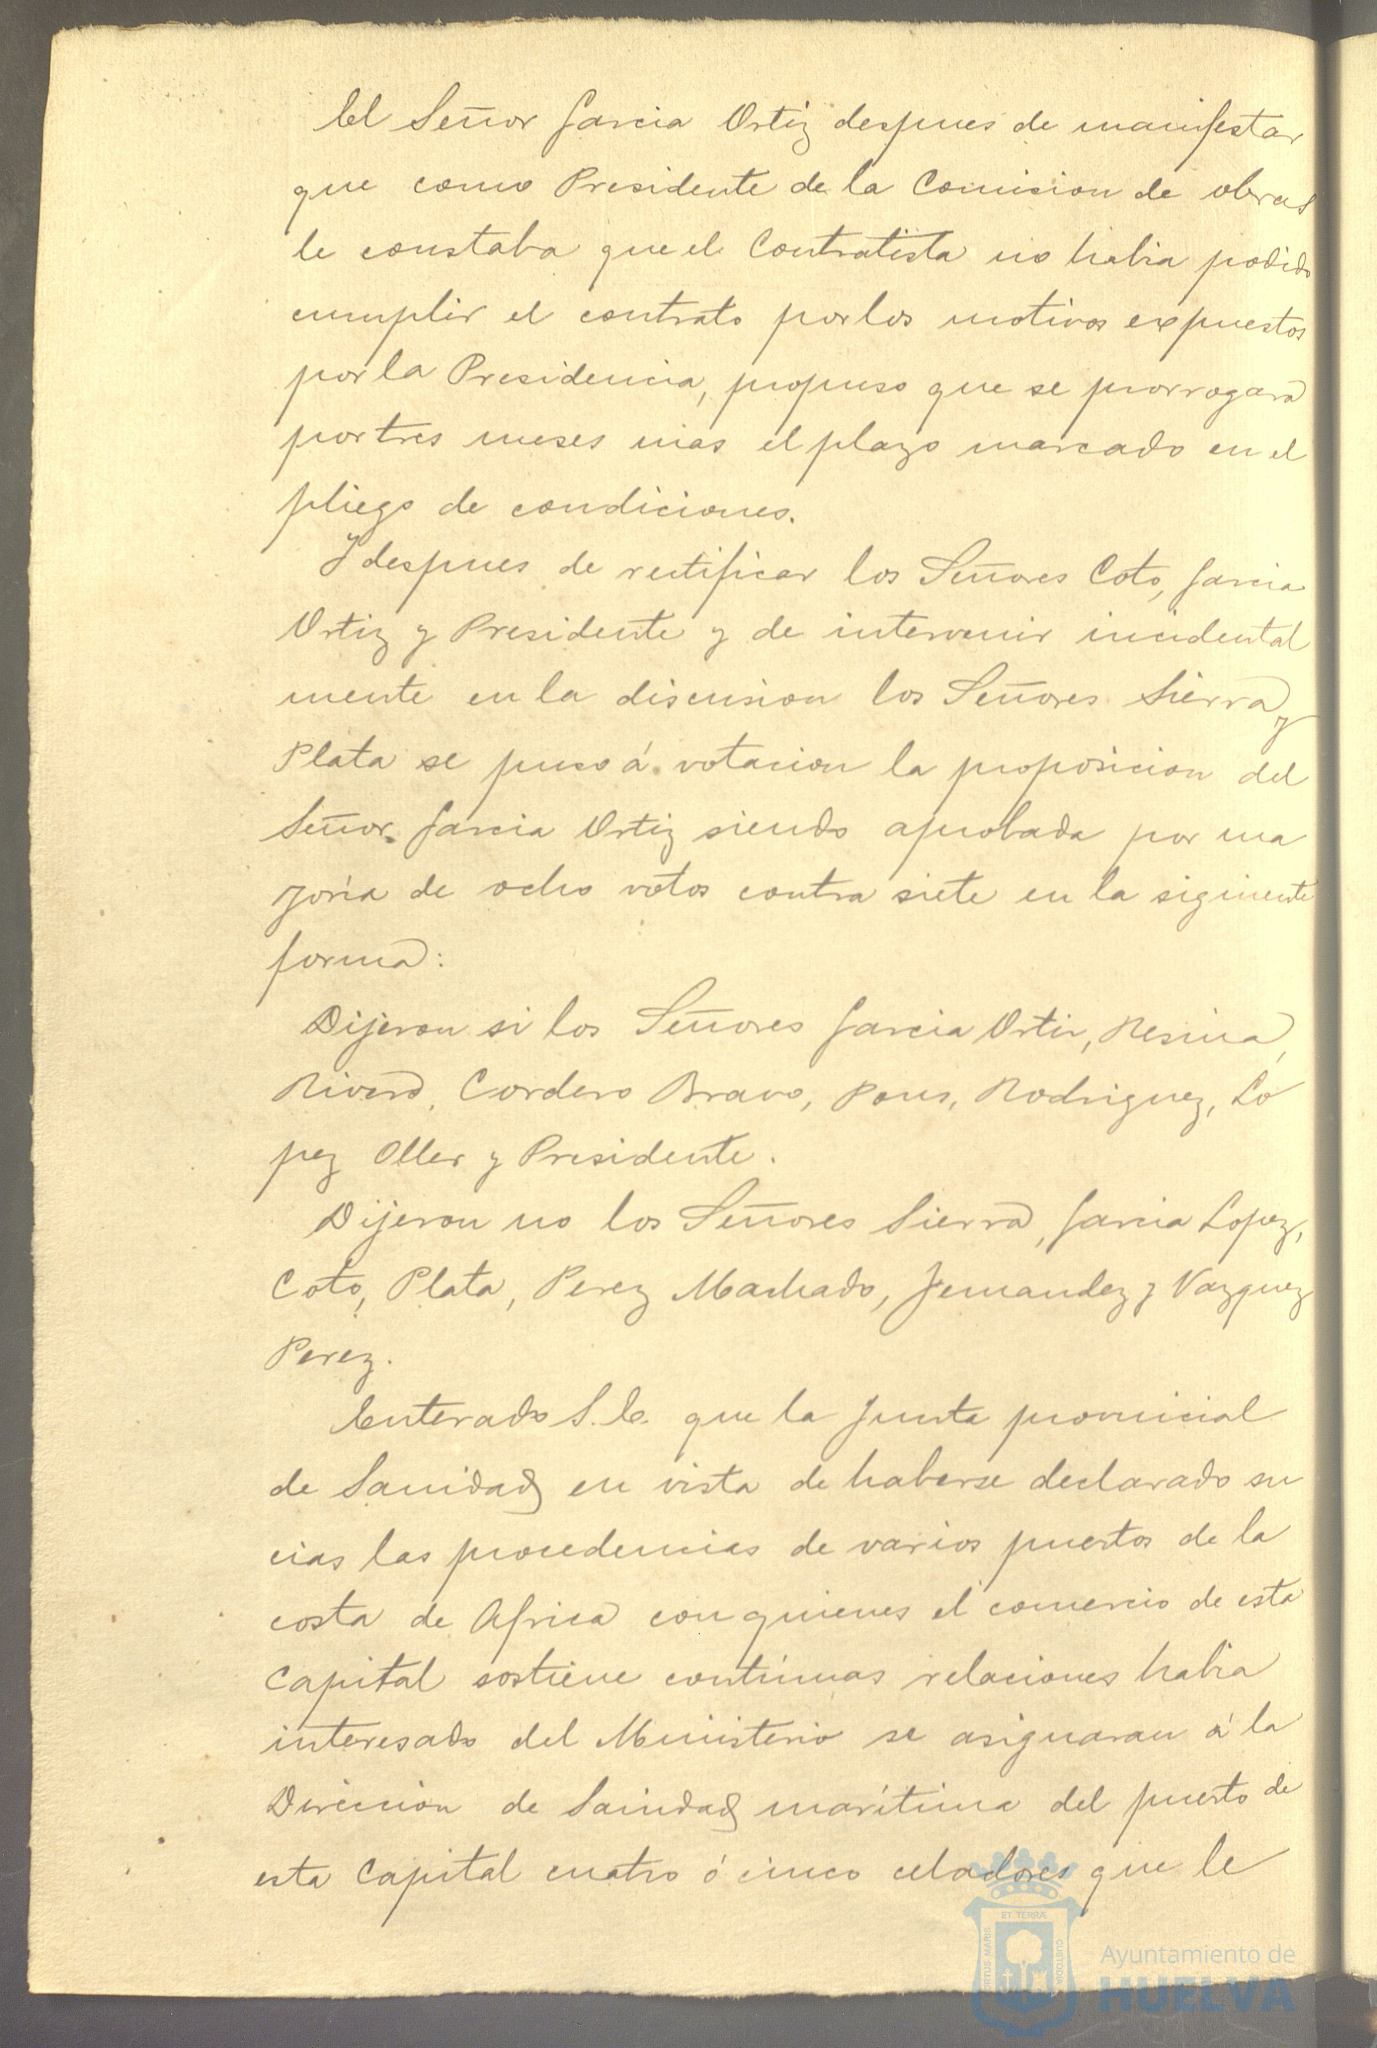 El Señor Garcia Ortiz despues de manifestar
que como Presidente de la Comision de obras
le constaba que el Contratista no habia podido
cumplir el contrato por los motivos expuestos
por la Presidencia, propuso que se prorrogara
por tres meses mas el plazo marcado en el
pliego de condiciones.
Y despues de rectificar los Señores Coto, Garcia
Ortiz y Presidente y de intervenir incidental
mente en la discusion los Señores Sierra y
Plata se puso á votacion la proposicion del
Señor Garcia Ortiz siendo aprobada por ma
yoría de ocho votos contra siete en la siguiente
forma:
Dijeron si los Señores Garcia Ortiz, Resina,
Rivero, Cordero Bravo, Pons, Rodriguez, Lo
pez Oller y Presidente.
Dijeron no los Señores Sierra, Garcia Lopez,
Coto, Plata, Perez Machado, Fernandez y Vazquez
Perez.
Enterado S.E. que la Junta provincial
de Sanidad en vista de haberse declarado su
cias las procedencias de varios puertos de la
costa de Africa con quienes el comercio de esta
Capital sostiene contínuas relaciones habia
interesado del Ministerio se asignaran á la
Direccion de Sanidad marítima del puerto de
esta Capital cuatro ó cinco celadores que le
ET TERRÆ
PORTUS MARIS
CUSTODIA
Ayuntamiento de
HUELVA